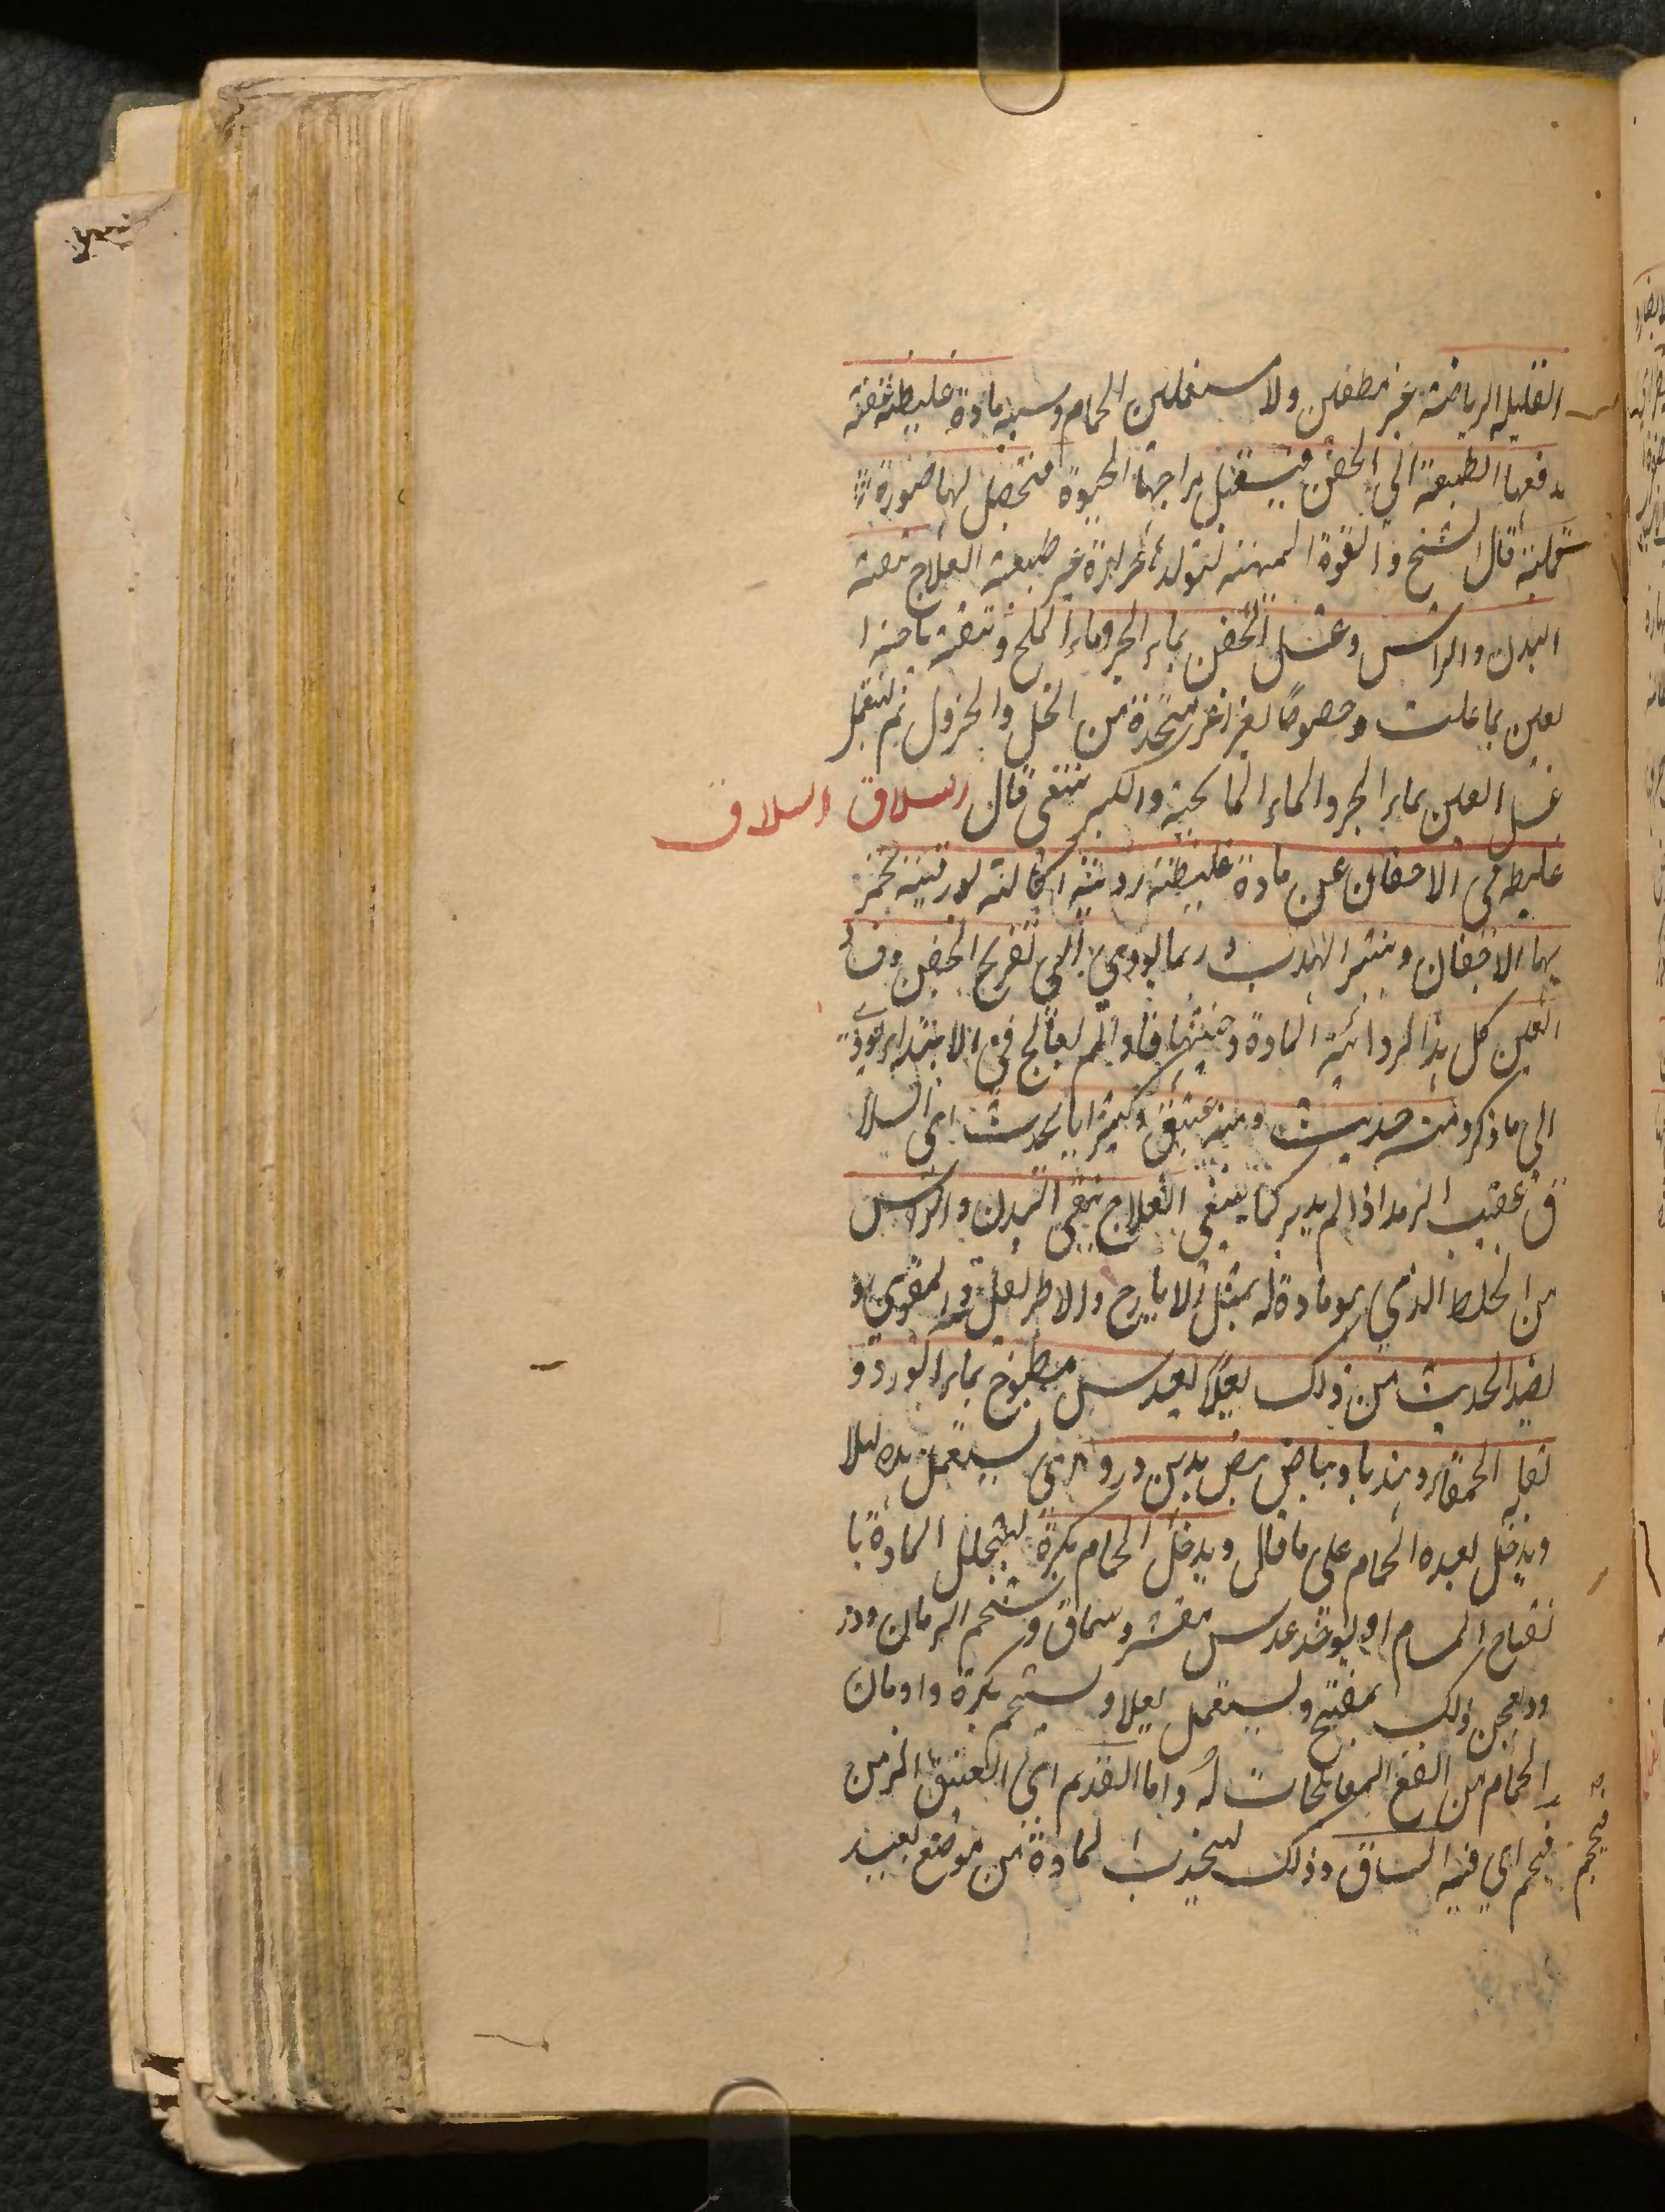 القليله الرياضة غير متطفين ولا مستعملين الحمام وسببه مادة غليظة عفنة
يدفعها الطبيعة الى الجفن فيستقبل مزاجها الحيوة فتحصل لها صورة
قملية قال الشيخ والقوة المهيئة لتولده حرارة غير طبيعية العلاج تنقية
البدن والراس وغسل الجفن بماء البحر وماء الملح وتنقية ناحية ا
لعين بما علمت وخصوصا بغراغر متخذة من الخل والخردل ثم يستعمل
غسل العين بماء البحر والماء المالحية والكبريتى قال السلاق السلاق
غلظ فى الاجفان عن مادة غليظة رديئة اكالة بورقية تحمر
بها الاجفان وينتثر الهدب وربما يؤدي الى تقرح الجفن وفساد
العين كل هذا لرداءة المادة وخبثها فاذا لم يعالج فى الابتداء يؤدي
الى ما ذكر ومنه حديث ومنه عتيق وكثيرا ما يحدث اى السلا
ق عقيب الرمد اذا لم يدبر كما ينبغى العلاج ينقى البدن والراس
من الخلط الذي هو مادة له بمثل الايارج والاطريفل المقوى و
يضمد الحديث من ذلك ليلا بعدس مطبوخ بماء الورد و
بقلة الحمقاء وهندبا وبياض بيض بدهن ورد اى يستعمل هذه ليلا
ويدخل بعده الحمام على ما قال ويدخل الحمام بكرة ليتحلل المادة با
نفتاح المسام او يؤخذ عدس مقشر وسماق وشحم الرمان وور
ود يعجن ذلك بمفتج ويستعمل ليلا ويستحم بكرة وادمان
الحمام من انفع المعالجات له واما القديم اى العتيق المزمن
فيحجم اي فيه الساق وذلك لينجذب المادة من موضع بعيد
فيحجم